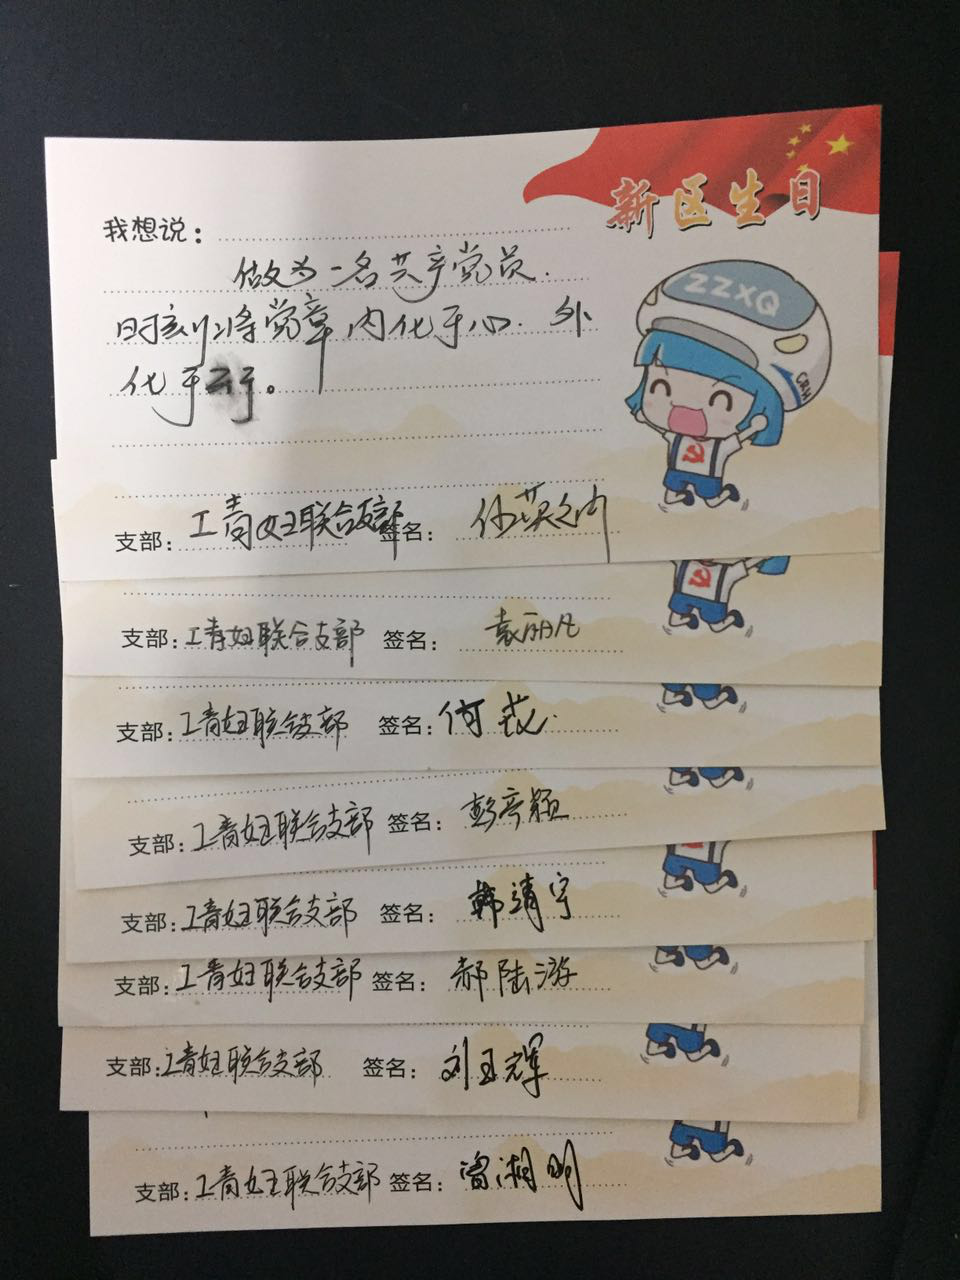 新区生日
我想说：
做为一名共产党员.
时刻将党章内化于心.外
化于行。
ZZXQ
CRH
支部：工青妇联合支部 签名：
支部：工青妇联合支部 签名：袁丽凡
支部：工青妇联合支部 签名：何
支部：工青妇联合支部 签名：彭彦颖
支部：工青妇联合支部 签名：韩靖宇
支部：工青妇联合支部 签名：郝陆游
支部：工青妇联合支部 签名：刘玉辉
支部：工青妇联合支部 签名：曾湘明